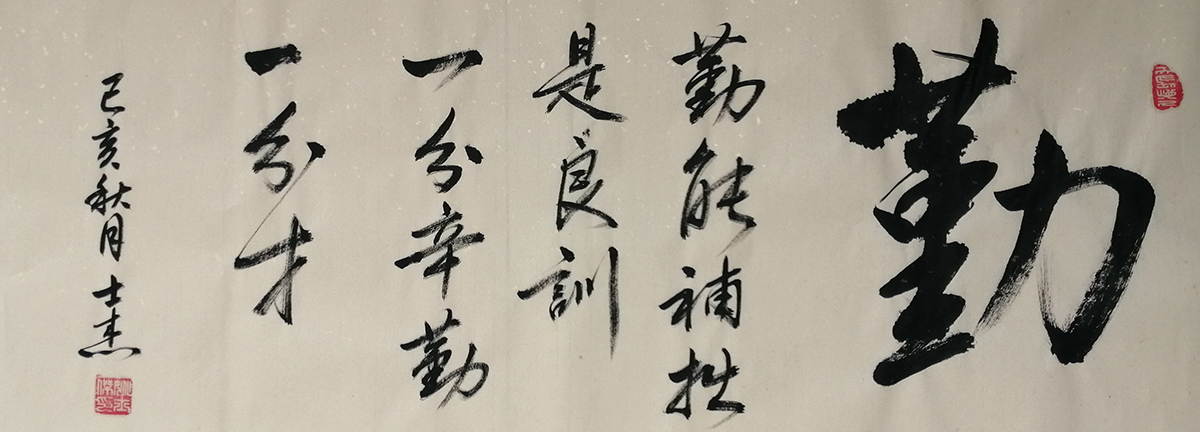 勤
勤能補拙
是良訓
一分辛勤
一分才
己亥秋月士杰